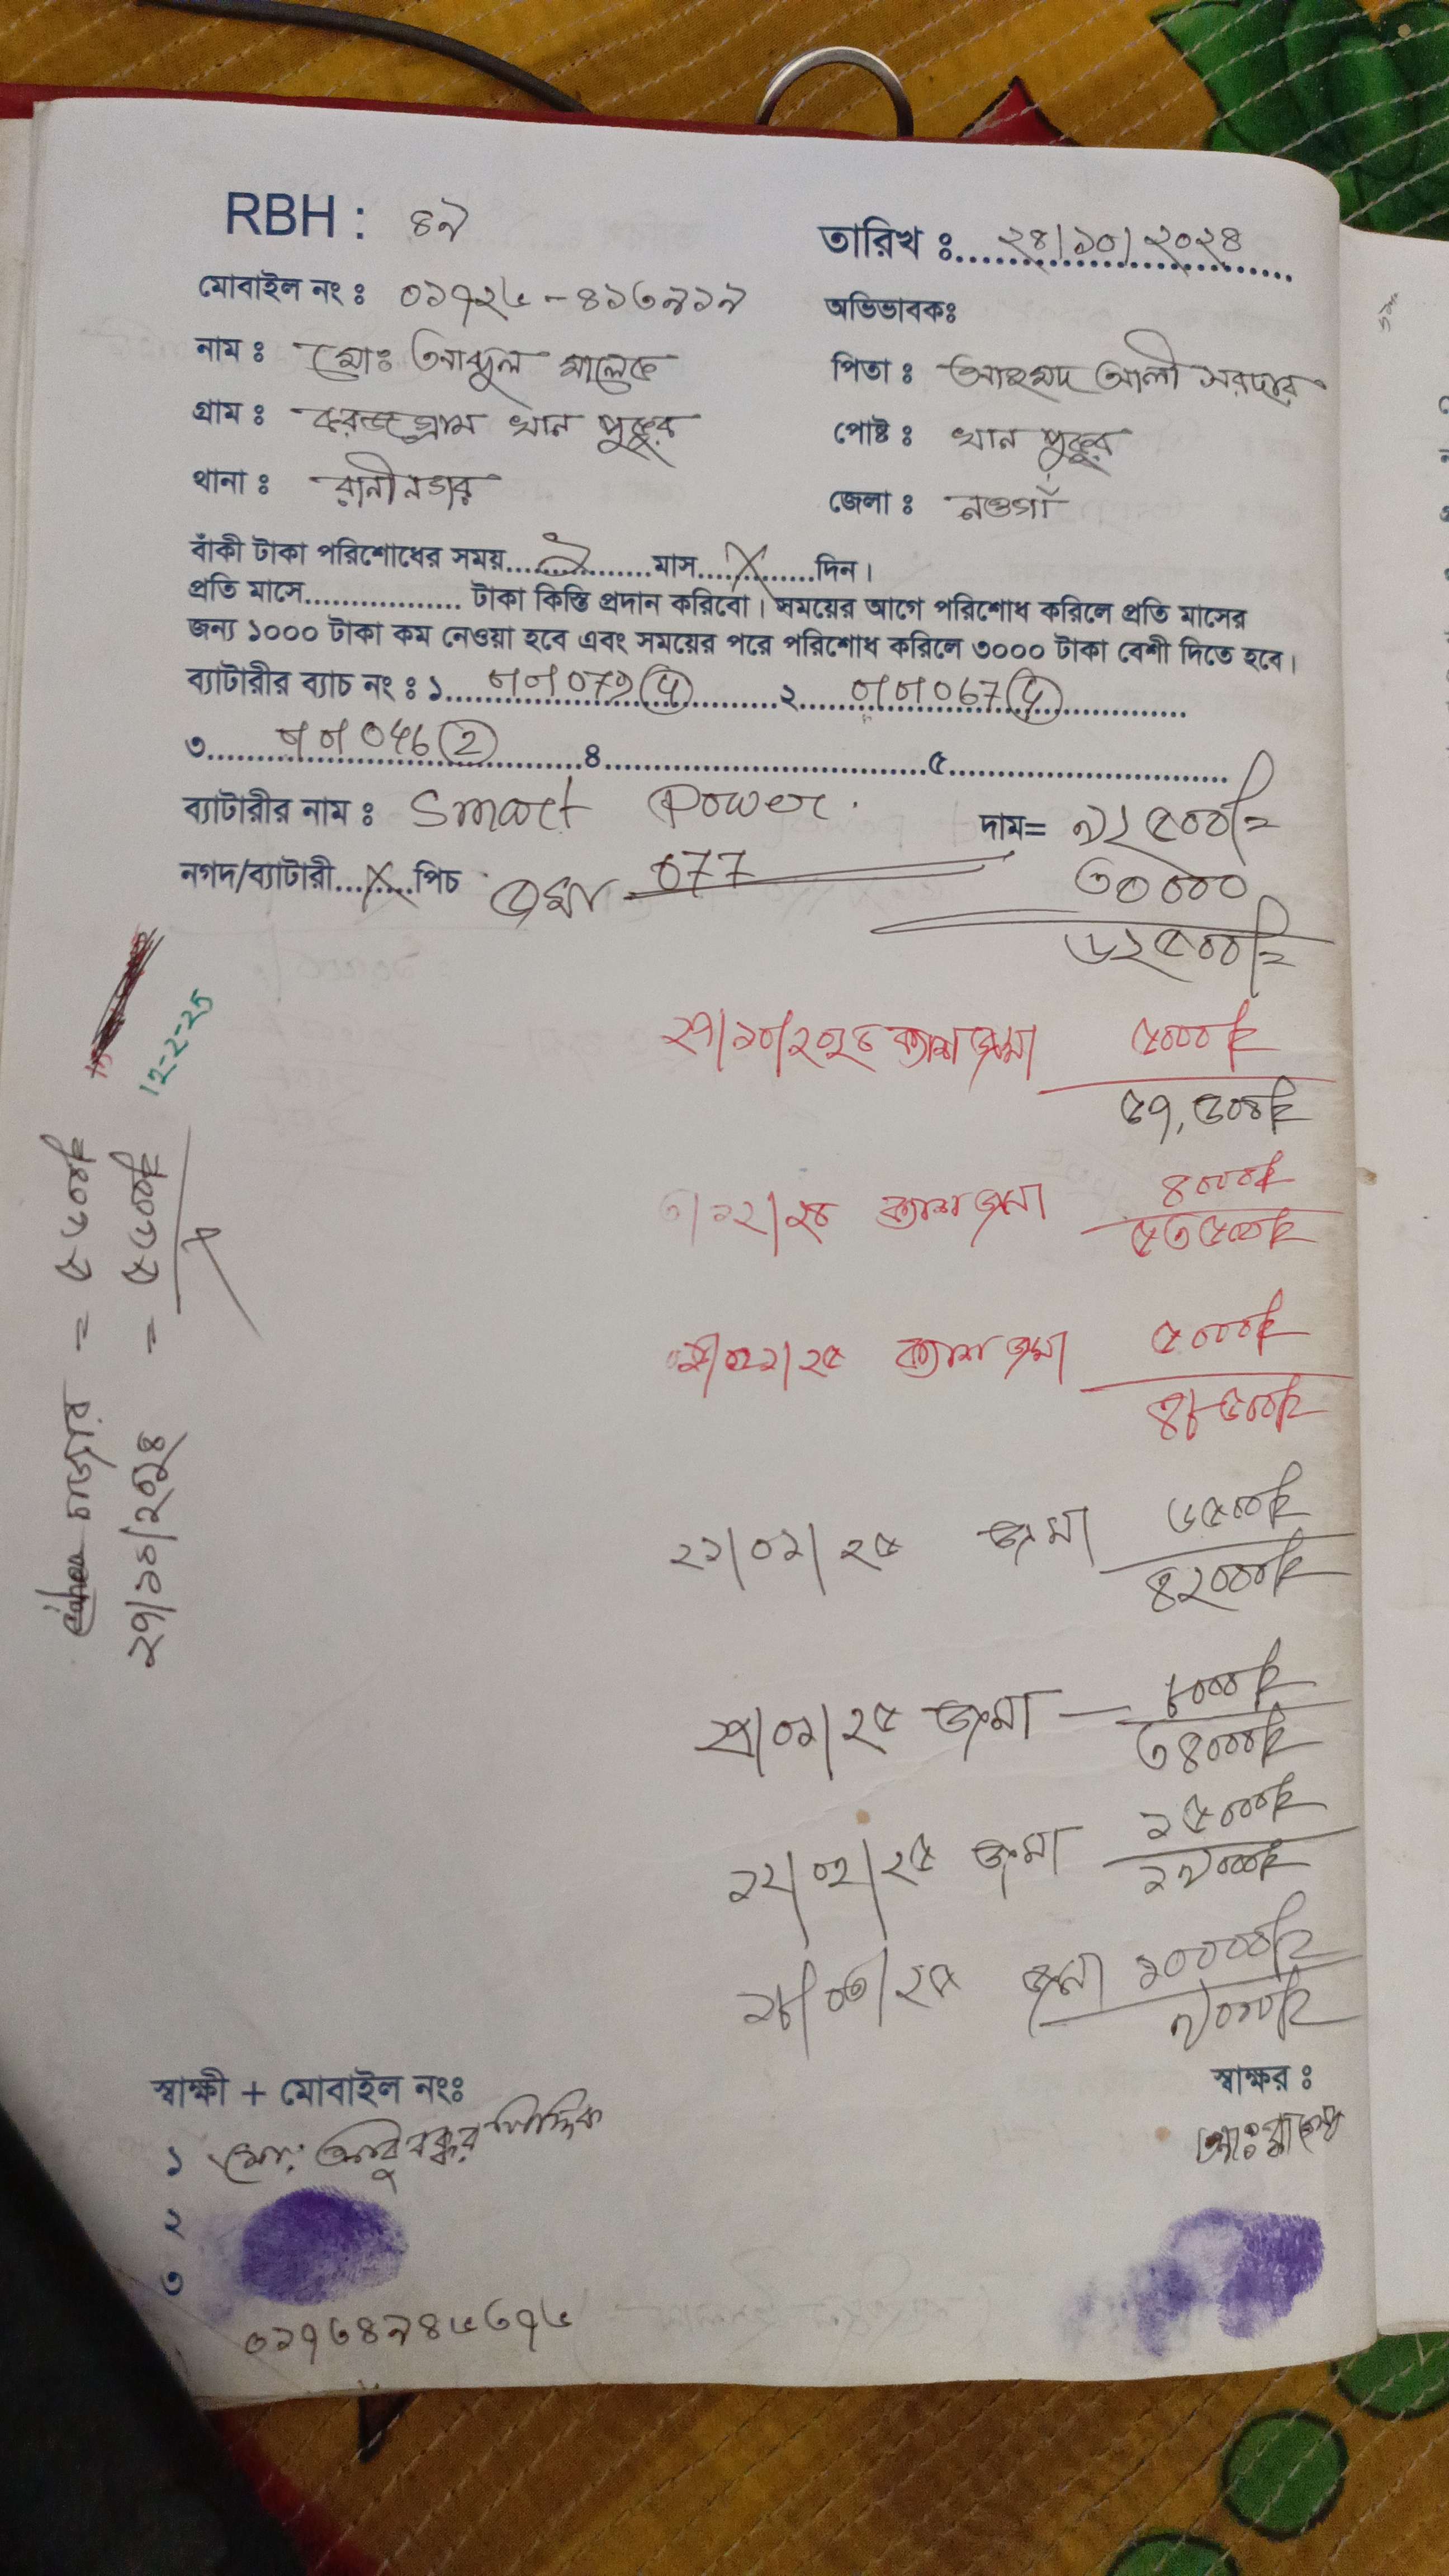 RBH : ৪৯
তারিখ ঃ ২৪/১০/২০২৪
মোবাইল নং ঃ ০১৭২৬-৪১৩৯১৯
অভিভাবকঃ
নাম ঃ মোঃ আব্দুল মালেক
পিতা ঃ আহম্মদ আলী সরদার
গ্রাম ঃ করজগ্রাম খান পুকুর
পোষ্ট ঃ খান পুকুর
থানা ঃ রানীনগর
জেলা ঃ নওগাঁ
বাঁকী টাকা পরিশোধের সময়.....................মাস.....X.......দিন।
প্রতি মাসে................. টাকা কিস্তি প্রদান করিবো। সময়ের আগে পরিশোধ করিলে প্রতি মাসের
জন্য ১০০০ টাকা কম নেওয়া হবে এবং সময়ের পরে পরিশোধ করিলে ৩০০০ টাকা বেশী দিতে হবে।
ব্যাটারীর ব্যাচ নং ঃ ১ ২ 067
৩ 046 (2) ৪ ৫
ব্যাটারীর নাম ঃ Smart Power.
দাম= ৯২৫০০/=
নগদ/ব্যাটারী....X....পিচ
জমা 077
৩০০০০
৬২৫০০/=
২৭/১০/২০২৪ ক্যাশ জমা ৫০০০/=
৫৭,৫০০/=
৩/১২/২৪ ক্যাশ জমা ৪০০০/=
৫৩৫০০/=
/২৫ ক্যাশ জমা ৫০০০/=
৪৮৫০০/=
২১/০১/২৫ জমা ৬৫০০/=
৪২০০০/=
/০১/২৫ জমা — ৮০০০/=
৩৪০০০/=
১২/০২/২৫ জমা ১৫০০০/=
১৯০০০/=
১৮/০৩/২৫ জমা ১০০০০/=
৯০০০/=
চার্জার = ৫৬০০/=
২৭/১০/২০২৪ = ৫৬০০/=
12-2-25
স্বাক্ষী + মোবাইল নংঃ
স্বাক্ষর ঃ
১ মো: আবু বক্কর সিদ্দিক
২
৩
০১৭৩৪৯৪৬৩৭৬